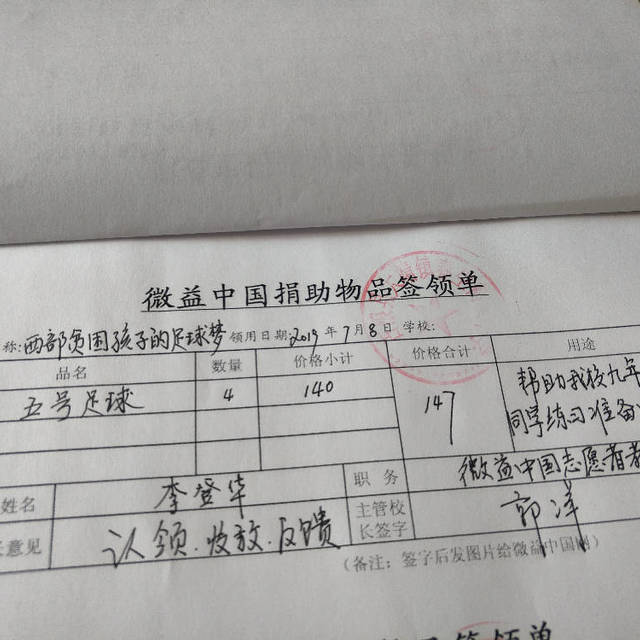 微益中国捐助物品签领单
称:西部贫困孩子的足球梦 领用日期:2019年7月8日 学校:
品名 数量 价格小计 价格合计 用途
五号足球 4 140 147 帮助我校九年
同学练习准备
姓名 李登华 职务 微益中国志愿者
意见 认领.收放.反馈 主管校
长签字 郭洋
(备注:签字后发图片给微益中国